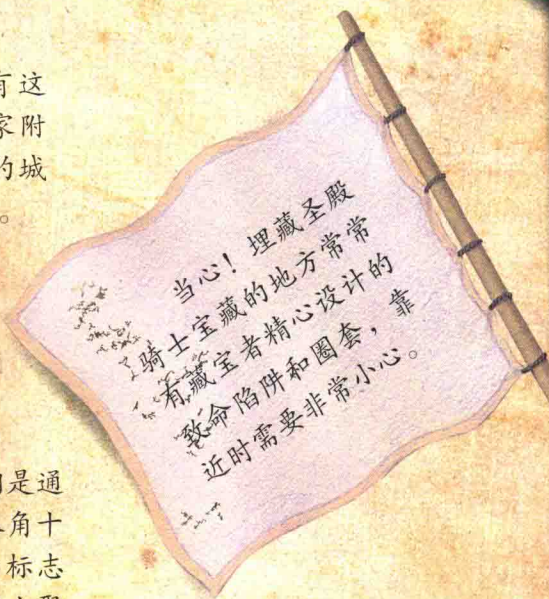 有这
家附
的城
。
当心！埋藏圣殿
骑士宝藏的地方常常
有藏宝者精心设计的
致命陷阱和圈套，靠
近时需要非常小心。
是通
角十
标志